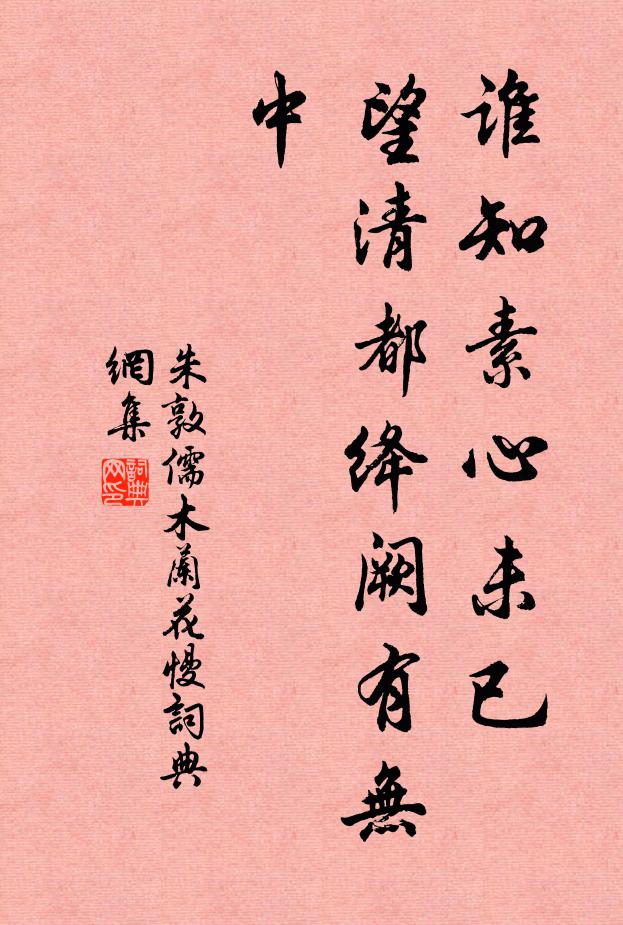 谁知素心未已
望清都绛阙有無
中
朱敦儒木蘭花慢詞典
網集
詞典
网印